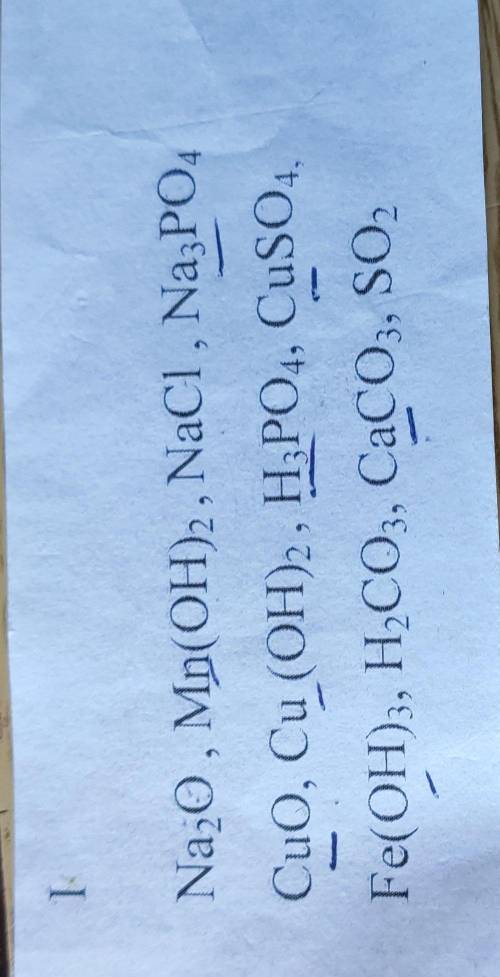 I
Na₂O , Mn(OH)₂ , NaCl , Na₃PO₄
CuO, Cu (OH)₂ , H₃PO₄, CuSO₄,
Fe(OH)₃, H₂CO₃, CaCO₃, SO₂